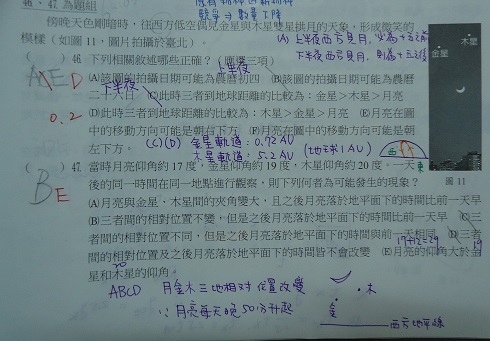 46、47為題組
傍晚天色剛暗時，往西方低空偶見金星與木星雙星拱月的天象，形成微笑的
模樣（如圖11，圖片拍攝於臺北）。
(A)上半夜西方見月，必為十五之前
下半夜西方見月，則為十五之後
木星
金星
上半夜
(　) 46. 下列相關敘述哪些正確？（應選三項）
A E D
(A)該圖的拍攝日期可能為農曆初四 (B)該圖的拍攝日期可能為農曆
下半夜
二十六日 (C)此時三者到地球距離的比較為：金星＞木星＞月亮
0.2
(D)此時三者到地球距離的比較為：木星＞金星＞月亮 (E)月亮在圖
中的移動方向可能是朝右下方 (F)月亮在圖中的移動方向可能是朝
左下方。
(C)(D) 金星軌道：0.72 AU
木星軌道：5.2 AU (地球1AU)
西
東
圖11
(　) 47. 當時月亮仰角約17度，金星仰角約19度，木星仰角約20度。一天
B E
後的同一時間在同一地點進行觀察，則下列何者為可能發生的現象？
(A)月亮與金星、木星間的夾角變大，且之後月亮落於地平面下的時間比前一天早
(B)三者間的相對位置不變，但是之後月亮落於地平面下的時間比前一天早 (C)三
者間的相對位置不同，但是之後月亮落於地平面下的時間與前一天相同 (D)三者
17+12=29
19
間的相對位置及之後月亮落於地平面下的時間皆不會改變 (E)月亮的仰角大於金
20
星和木星的仰角。
ABCD 月金木三地相對位置改變
∵月亮每天晚50分升起
木
金
西方地平線